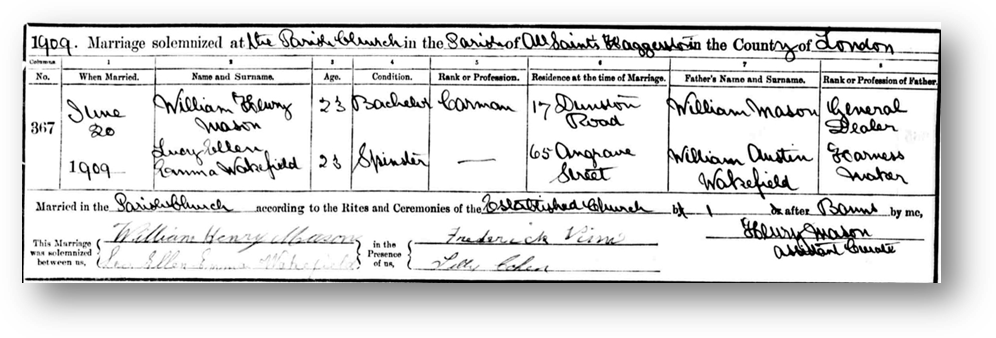 1909. Marriage solemnized at the Parish Church in the Parish of All Saints Haggerston in the County of London
Columns 1 2 3 4 5 6 7 8
No. When Married. Name and Surname. Age. Condition. Rank or Profession. Residence at the time of Marriage. Father's Name and Surname. Rank or Profession of Father.
367 June 20 1909 William Henry Mason 23 Bachelor Carman 17 Dunston Road William Mason General Dealer
Lucy Ellen Emma Wakefield 23 Spinster — 65 Angrave Street William Austin Wakefield Harness Maker
Married in the Parish Church according to the Rites and Ceremonies of the Established Church by or after Banns by me,
This Marriage was solemnized between us, William Henry Mason in the Presence of us, Frederick Henry Mason
Ellen Emma Wakefield Assistant Curate